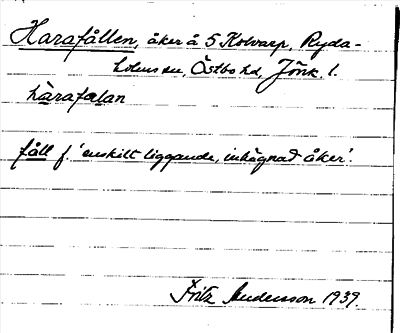 Harafållen, åker å S Kolvarp, Ryda-
holms sn, Östbo hd, Jönk. l.
hàrafælan
fåll f. 'enskilt liggande, inhägnad åker'.
Fritz Andersson 1939.